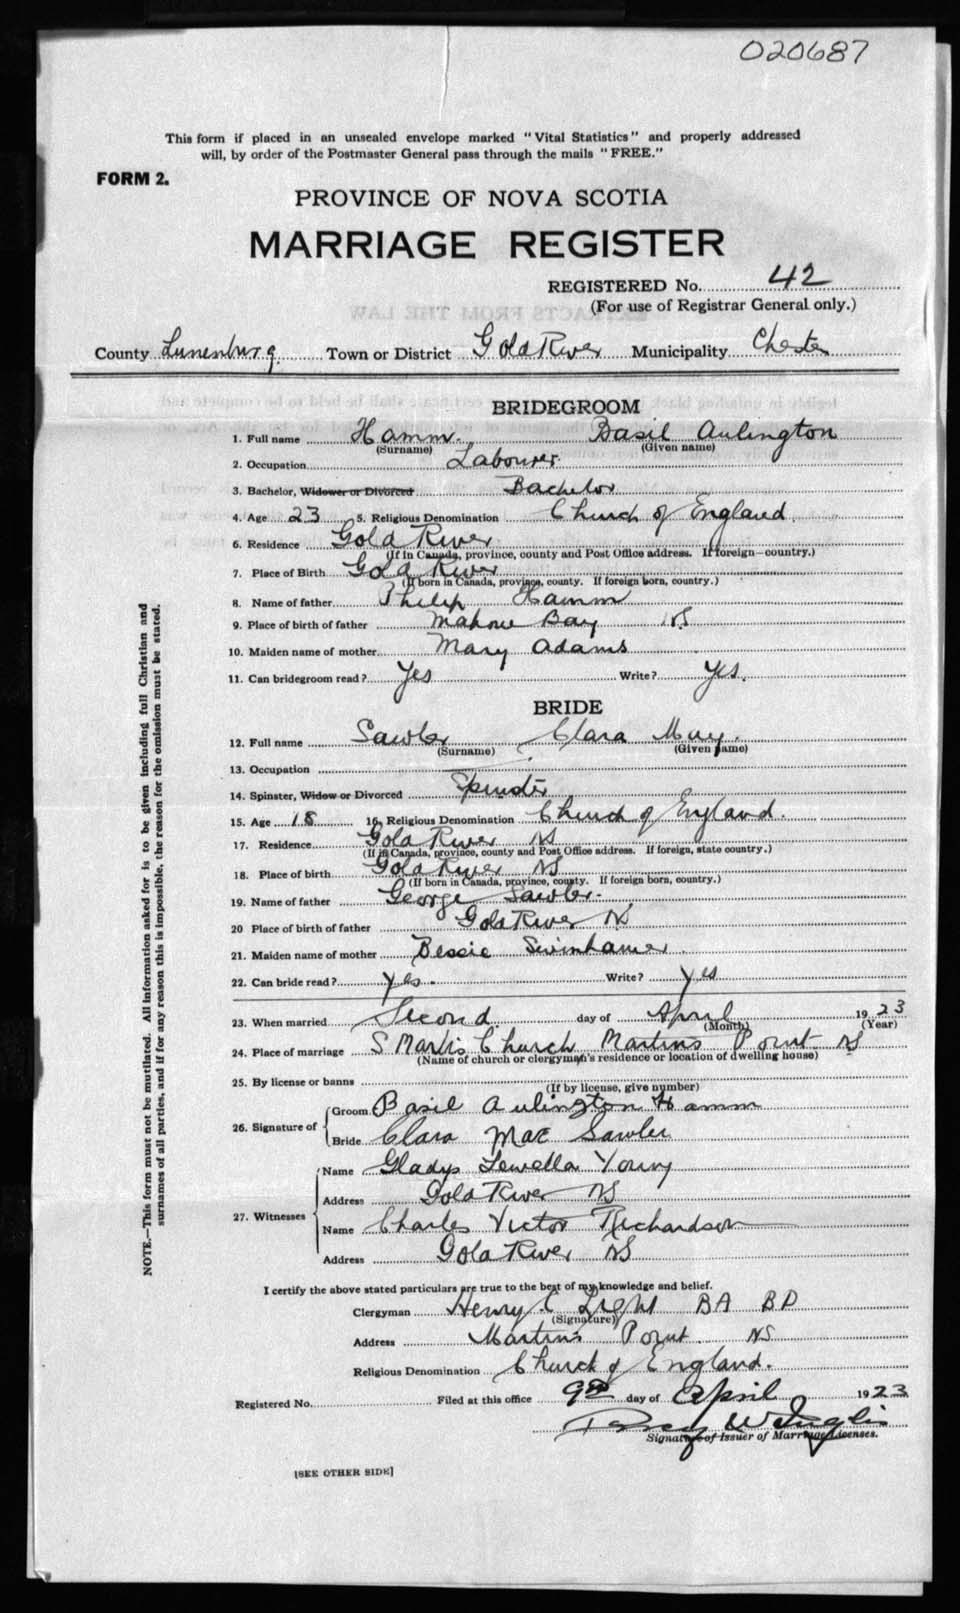 020687
This form if placed in an unsealed envelope marked "Vital Statistics" and properly addressed
will, by order of the Postmaster General pass through the mails "FREE."
FORM 2.
PROVINCE OF NOVA SCOTIA
MARRIAGE REGISTER
REGISTERED No. 42
(For use of Registrar General only.)
County Lunenburg Town or District Gold River Municipality Chester
BRIDEGROOM
1. Full name Hamm Basil Aulington
(Surname) (Given name)
2. Occupation Labourer
3. Bachelor, Widower or Divorced Bachelor
4. Age 23 5. Religious Denomination Church of England
6. Residence Gold River
(If in Canada, province, county and Post Office address. If foreign—country.)
7. Place of Birth Gold River
(If born in Canada, province, county. If foreign born, country.)
8. Name of father Philip Hamm
9. Place of birth of father Mahone Bay NS
10. Maiden name of mother Mary Adams
11. Can bridegroom read? Yes Write? Yes.
BRIDE
12. Full name Sawler Clara May.
(Surname) (Given name)
13. Occupation
14. Spinster, Widow or Divorced Spinster
15. Age 18 16. Religious Denomination Church of England.
17. Residence Gold River NS
(If in Canada, province, county and Post Office address. If foreign, state country.)
18. Place of birth Gold River NS
(If born in Canada, province, county. If foreign born, country.)
19. Name of father George Sawler.
20 Place of birth of father Gold River NS
21. Maiden name of mother Bessie Swinhamer
22. Can bride read? Yes. Write? Yes
23. When married Second day of April 1923
(Month) (Year)
24. Place of marriage S Marks Church Martins Point NS
(Name of church or clergyman's residence or location of dwelling house)
25. By license or banns
(If by license, give number)
26. Signature of
Groom Basil Aulington Hamm
Bride Clara Mae Sawler
27. Witnesses
Name Gladys Lewella Young
Address Gold River NS
Name Charles Victor Richardson
Address Gold River NS
I certify the above stated particulars are true to the best of my knowledge and belief.
Clergyman Henry C Light BA BD
(Signature)
Address Martins Point NS
Religious Denomination Church of England.
Registered No. Filed at this office 9th day of April 1923
Percy W Inglis
Signature of Issuer of Marriage Licenses.
[SEE OTHER SIDE]
NOTE.—This form must not be mutilated. All information asked for is to be given including full Christian and
surnames of all parties, and if for any reason this is impossible, the reason for the omission must be stated.